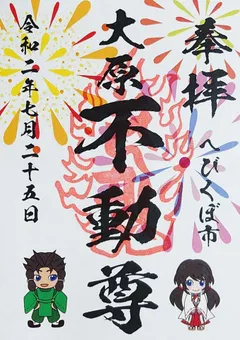 奉拝
へびくぼ市
大原
不動尊
令和二年七月二十五日